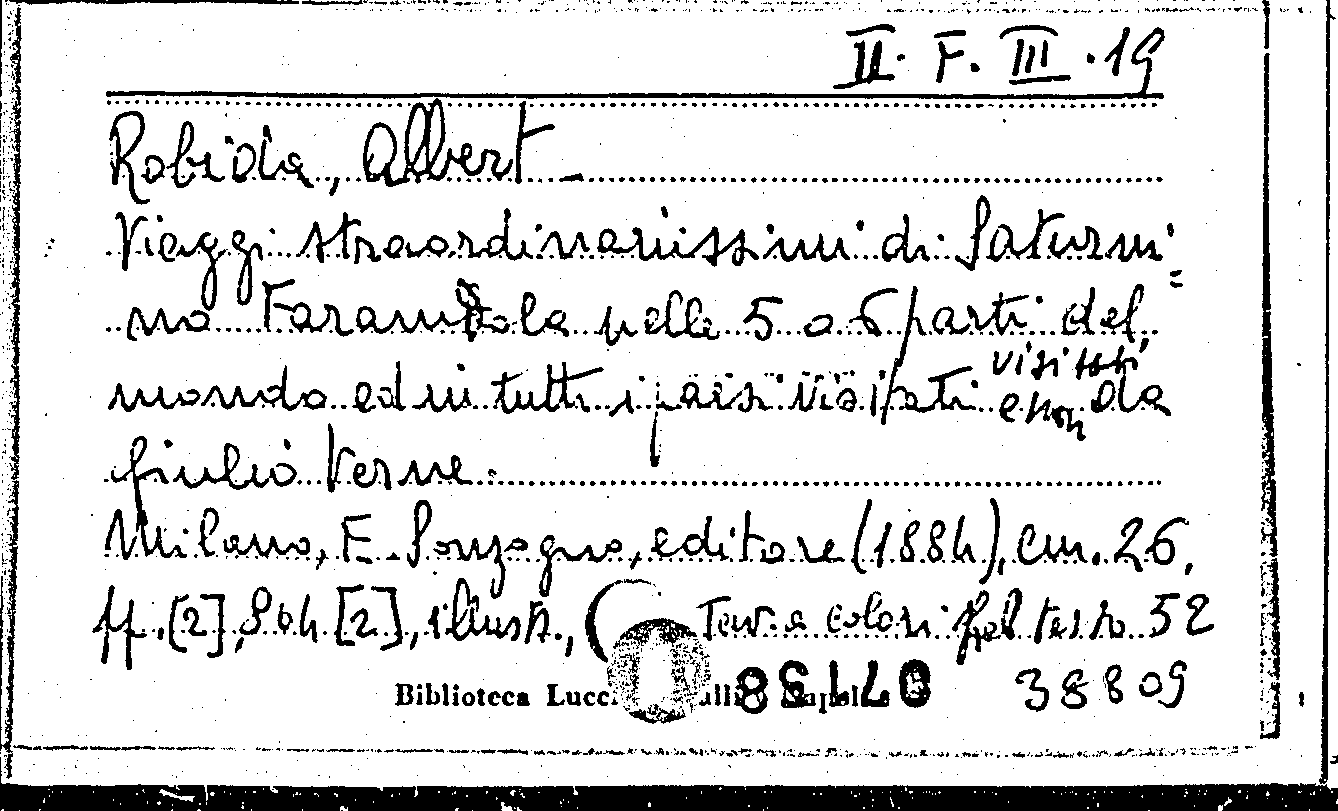 II. F. III. 19
Robida, Albert -
Viaggi straordinarissimi di Saturni=
no Farandola nelle 5 o 6 parti del
mondo ed in tutti i paesi visitati e non visitati da
Giulio Verne.
Milano, E. Sonzogno, editore (1884), cm. 26,
pp. [2], 804 [2], illustr., Tav. a colori nel testo 52
Biblioteca Lucch 38809